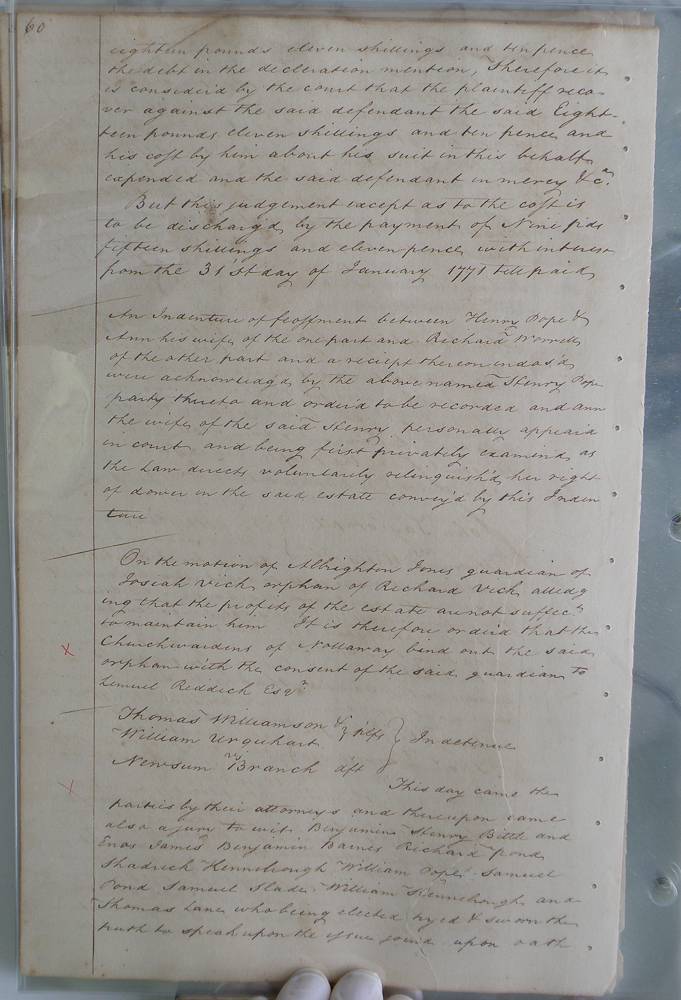 60
eighteen pounds eleven shillings and tenpence
the debt in the decleration mention, Therefore it
is consider'd by the court that the plaintiff reco-
ver against the said defendant the said Eight-
teen pounds eleven shillings and ten pence and
his cost by him about his suit in this behalf
expended and the said defendant in mercy &c.a
But this judgement except as to the cost is
to be discharg'd by the payment of Nine pds
fifteen shillings and eleven pence with interest
from the 31st day of January 1771 till paid
An Indenture of feoffment between Henry Pope &
Ann his wife of the one part and Richard Worrell
of the other part and a reciept thereon endors'd
were acknowledg'd by the above named Henry Pope
party thereto and order'd to be recorded and ann
the wife of the said Henry personally appear'd
in court and being first privately examined as
the Law directs voluntarily relinquish'd her right
of dower in the said estate convey'd by this Inden
ture
On the motion of Albrighton Jones guardian of
Josiah Vick orphan of Richard Vick alledg
ing that the profits of the estate are not suffect
to maintain him It is therefore order'd that the
Churchwardens of Nottoway bind out the said
orphan with the consent of the said guardian to
Lemuel Reddick Esqr
Thomas Williamson &
William Urquhart } plfs } In detenue
Newsum vs Branch dft
This day came the
parties by their attorneys and thereupon came
also a jury to wit Benjamin Henry Bittle and
Enos James Benjamin Baines Richard Pond
Shadrick Hennebough William Pope Samuel
Pond Samuel Slade William Hennebough and
Thomas Lane who being elected tryed & sworn the
truth to speak upon the issue joind upon oath